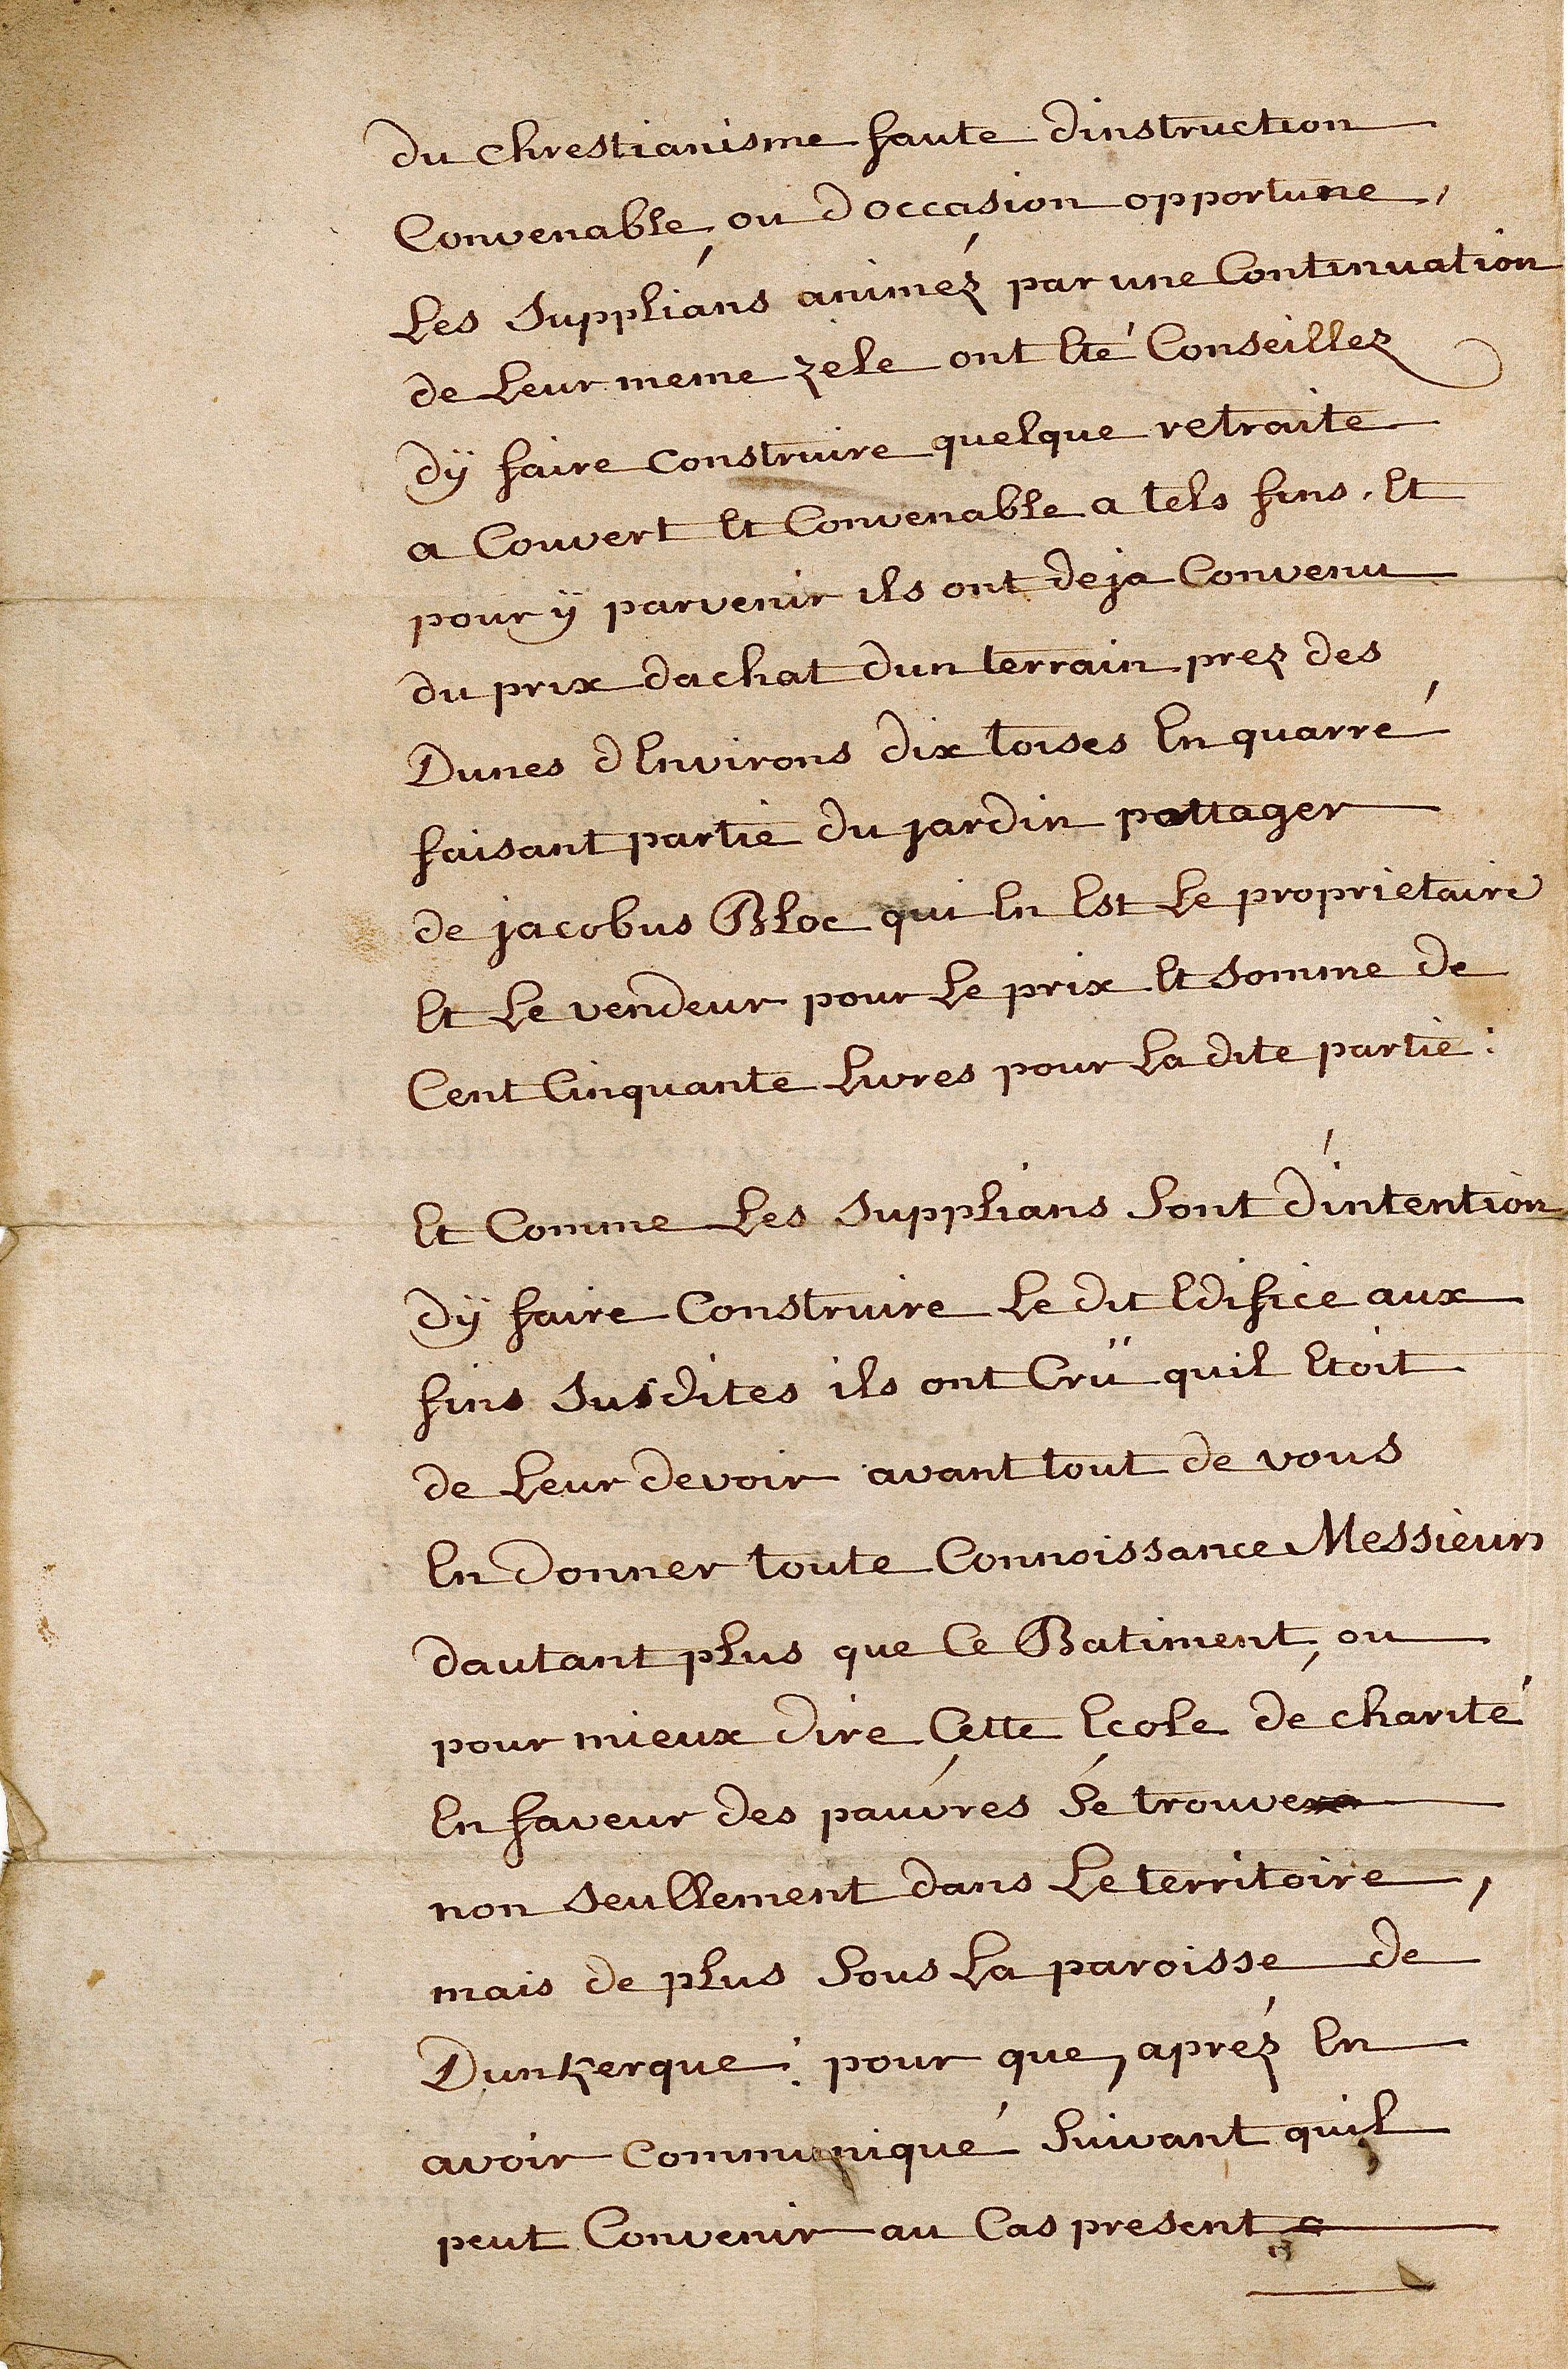 du chrestianisme faute dinstruction
Convenable, ou doccasion opportune,
Les Supplians animéz par une Continuation
de Leur meme zele ont Eté Conseillez
dÿ faire construire quelque retraite
a Couvert Et Convenable a tels fins, Et
pour ÿ parvenir ils ont deja Convenu
du prix dachat dun terrain prez des
Dunes dEnvirons dix toises En quarré
faisant partie du jardin pottager
de jacobus Bloc qui En Est Le proprietaire
Et Le vendeur pour Le prix Et somme de
Cent Cinquante Livres pour La dite partie:
Et Comme Les Supplians Sont d'intention
dÿ faire Construire Le dit Edifice aux
fins Susdites ils ont Crü quil Etoit
de Leur devoir avant tout de vous
En donner toute Connoissance Messieurs
dautant plus que Ce Batiment, ou
pour mieux dire Cette Ecole dé charité
En faveur des pauvres Sé trouve
non seullement dans Le territoire,
mais de plus Sous La paroisse de
Dunkerque: pour que, apréz En
avoir communiqué Suivant quil
peut Convenir au Cas present